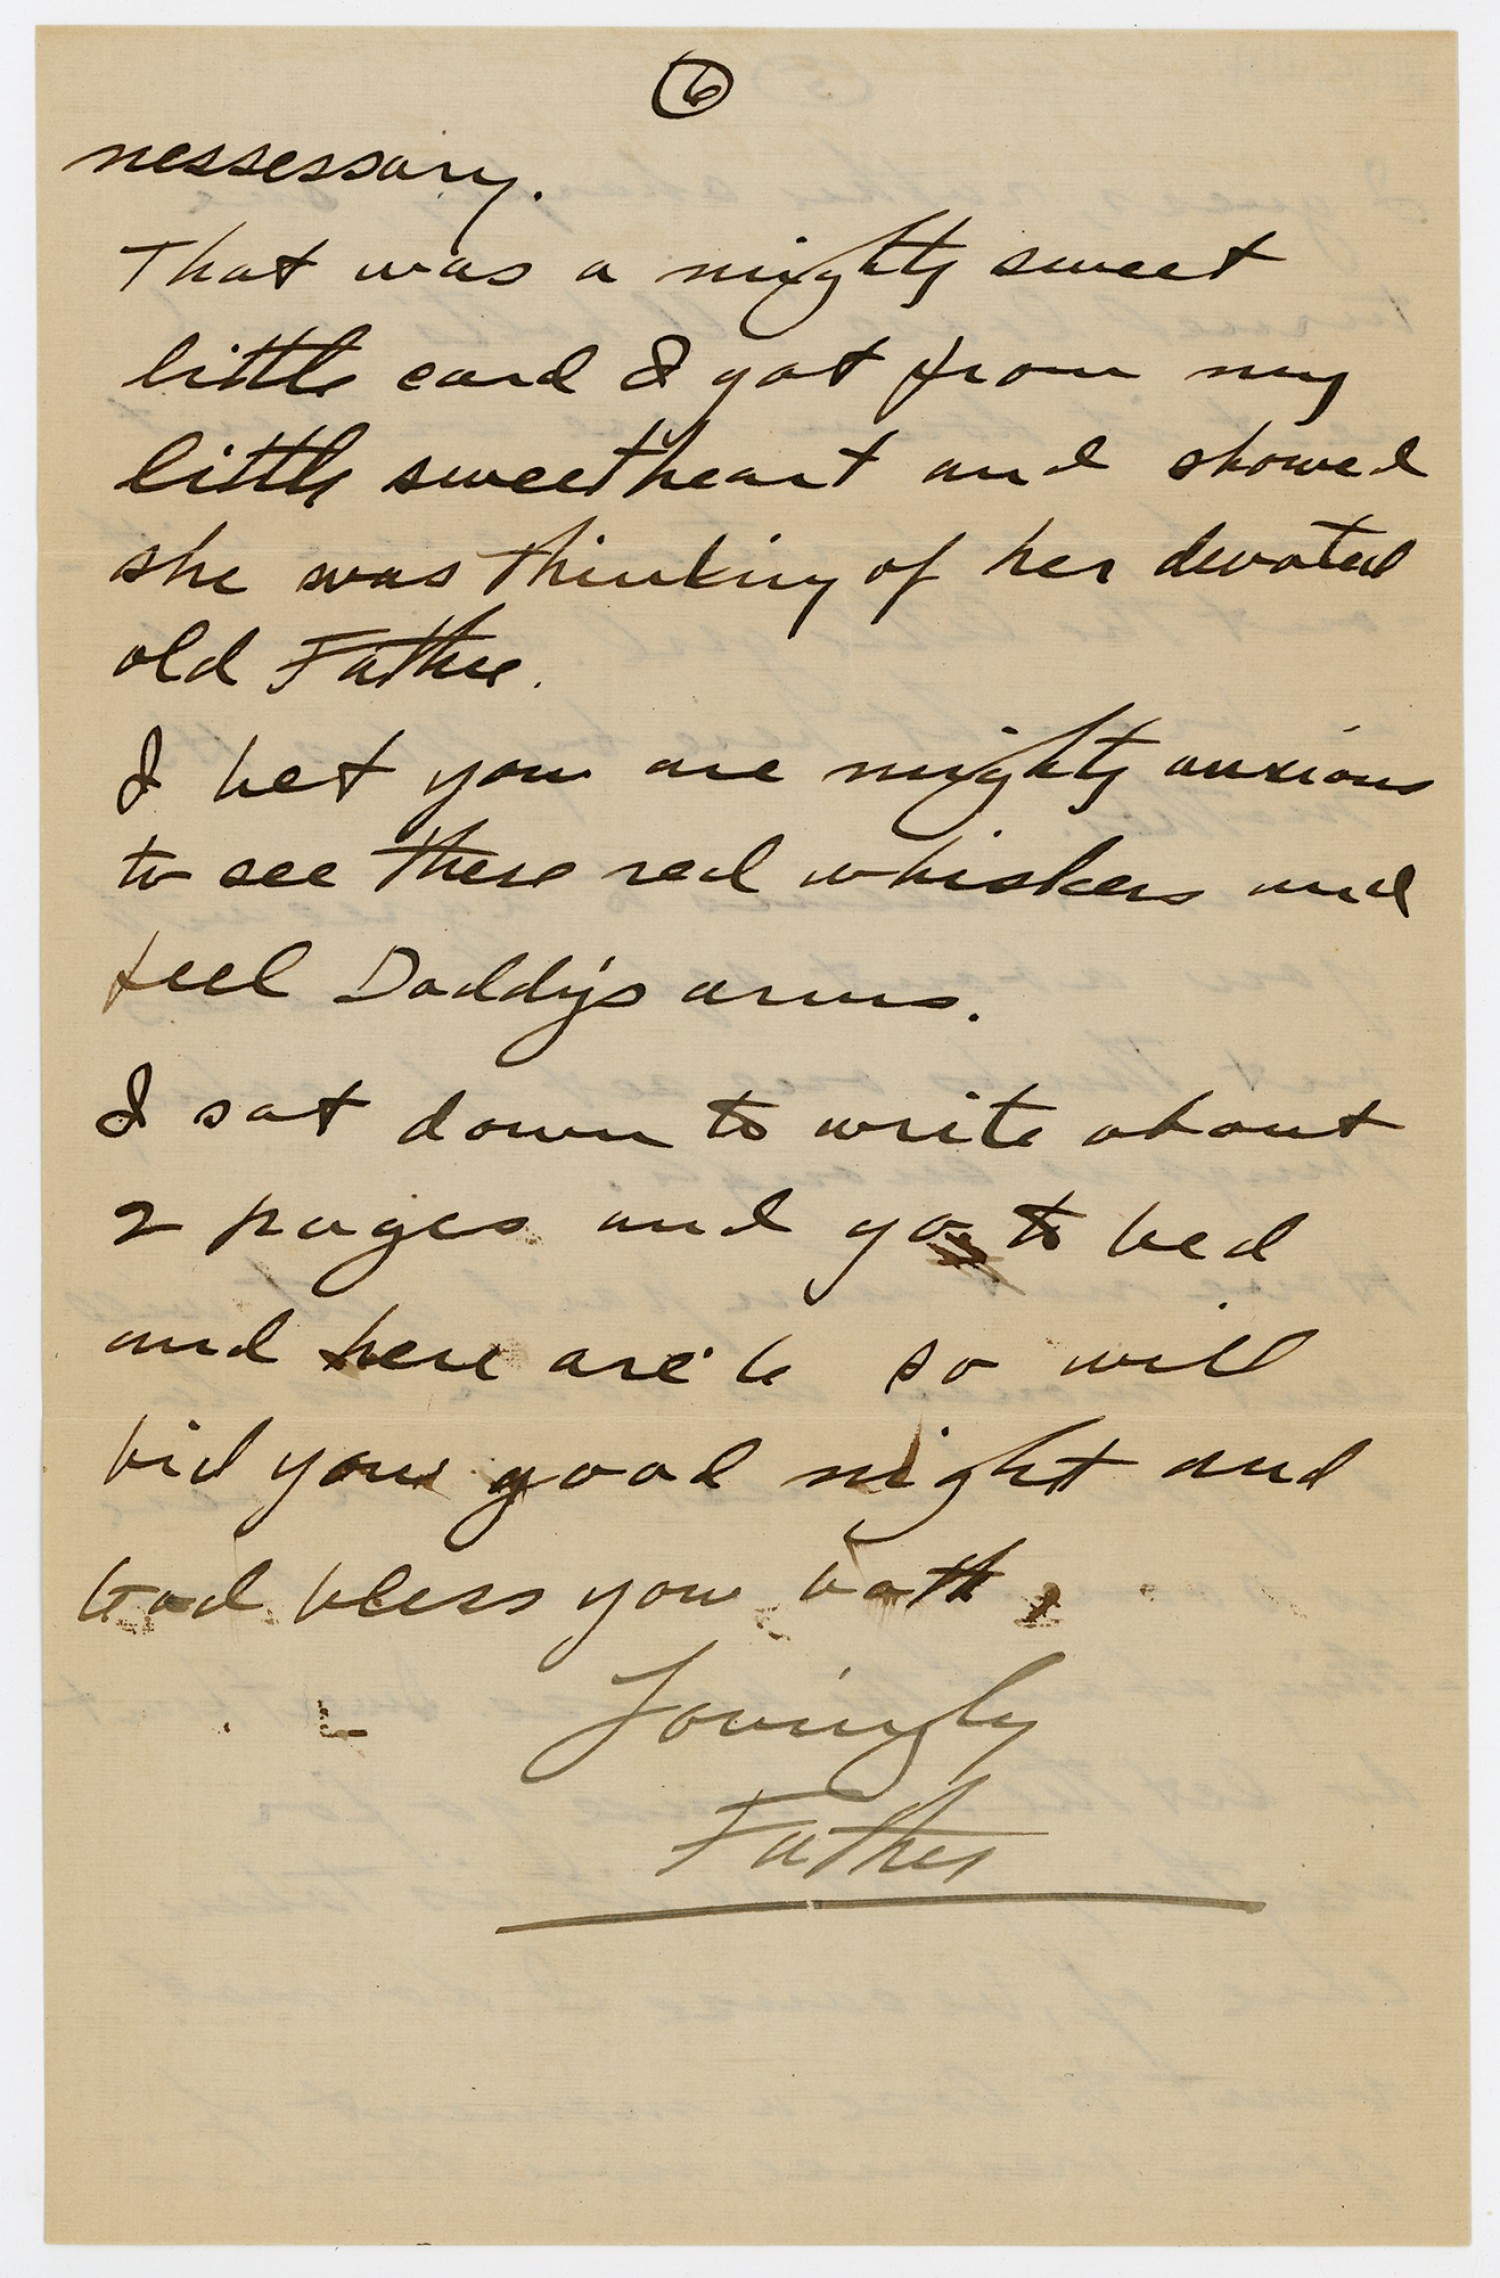 6
nessessary.
That was a mighty sweet
little card I got from my
little sweetheart and showed
she was thinking of her devoted
old Father.
I bet you are mighty anxious
to see these red whiskers and
feel Daddy's arms.
I sat down to write about
2 pages and go to bed
and here are 6 so will
bid you good night and
God bless you both.
Lovingly
Father